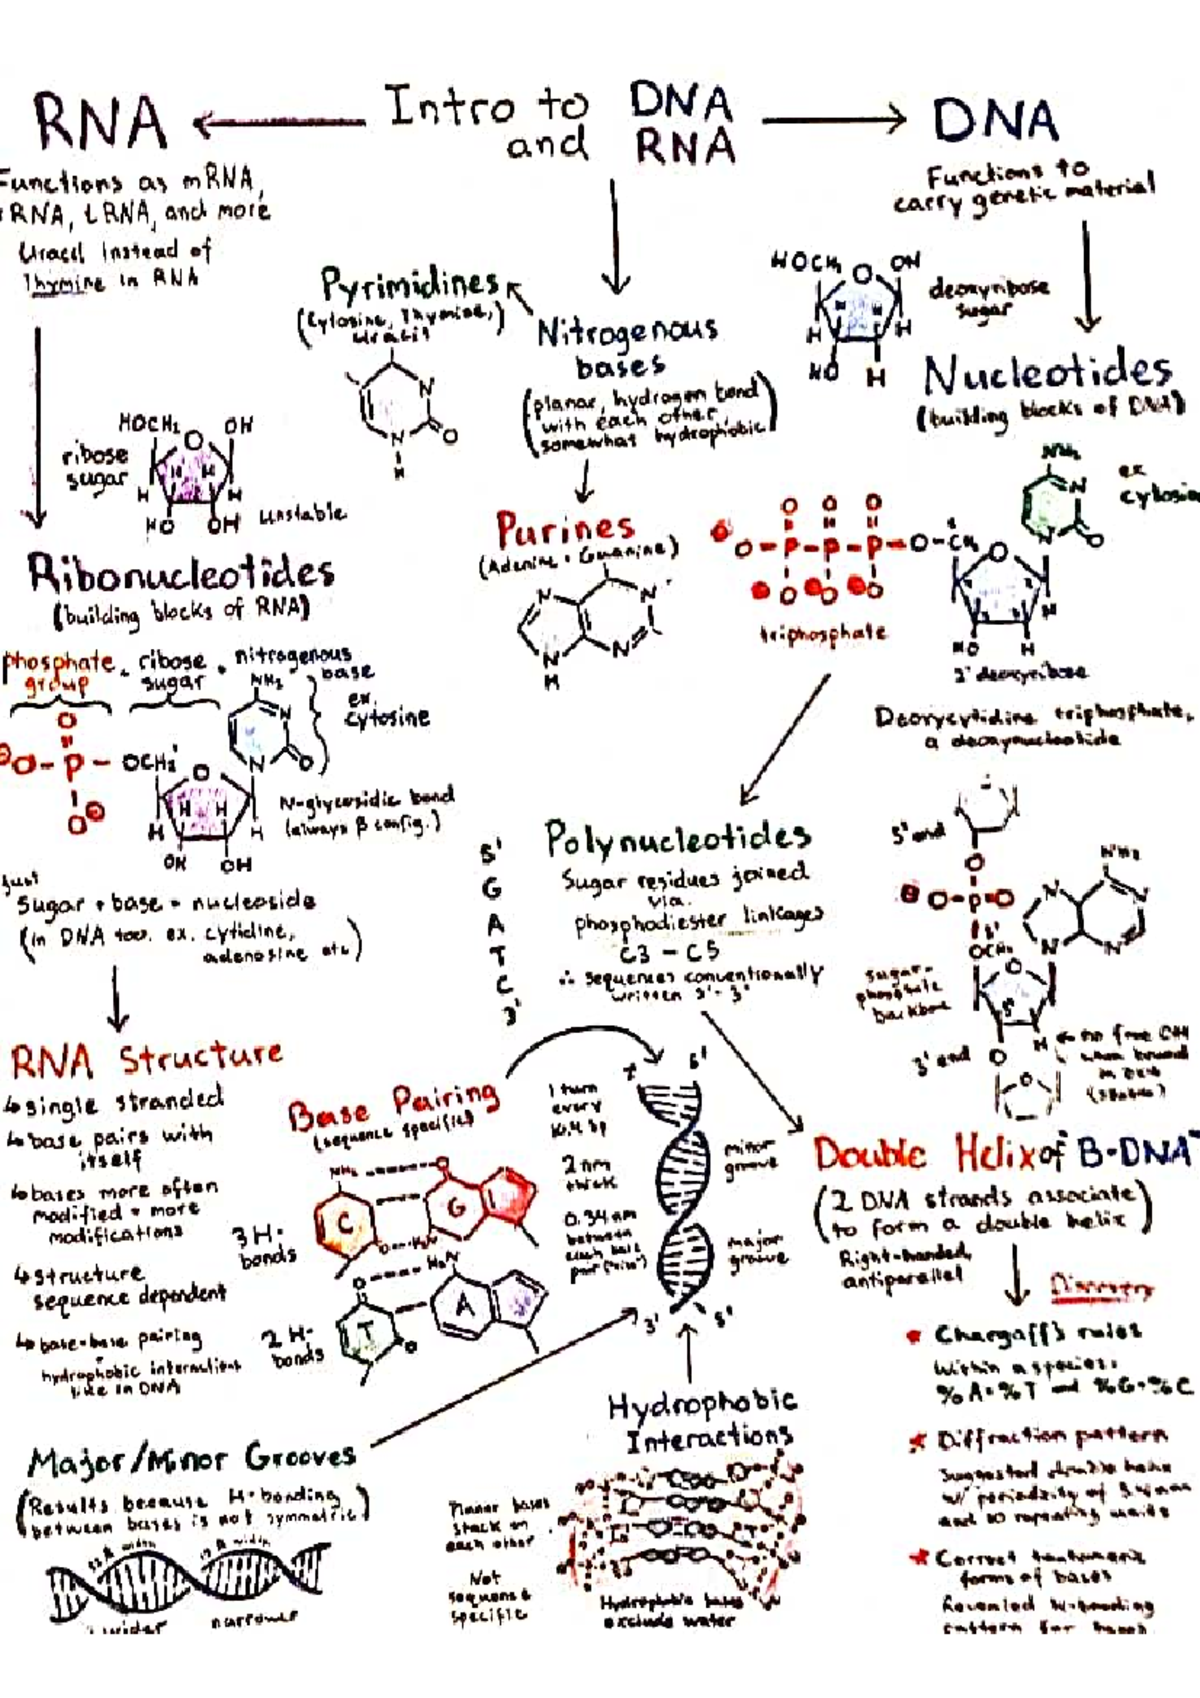 Intro to DNA
and RNA
RNA
Functions as mRNA,
rRNA, tRNA, and more
Uracil instead of
Thymine in RNA
HOCH₂ O OH
ribose
sugar
H H H H
HO OH unstable
Ribonucleotides
(building blocks of RNA)
phosphate group
ribose sugar
nitrogenous base
NH₂
ex.
cytosine
O
⊖O-P-OCH₂
O⊖
N
N
O
O
H H
H H
OH OH
N-glycosidic bond
(always β config.)
just
Sugar + base = nucleoside
(in DNA too. ex. cytidine,
adenosine etc)
RNA Structure
↳ single stranded
↳ base pairs with
itself
↳ bases more often
modified + more
modifications
↳ structure
sequence dependent
↳ base-base pairing
hydrophobic interactions
like in DNA
Pyrimidines
(Cytosine, Thymine,
Uracil)
N
N O
H
Nitrogenous
bases
(planar, hydrogen bond
with each other,
somewhat hydrophobic)
Purines
(Adenine + Guanine)
N N
N N
H
DNA
Functions to
carry genetic material
HOCH₂ O OH
deoxyribose
sugar
H H
HO H
Nucleotides
(building blocks of DNA)
NH₂
N
N O
ex
cytosine
O O O
O-P-P-P-O-CH₂ O
O O O
triphosphate
HO H
2' deoxyribose
Deoxycytidine triphosphate,
a deoxynucleotide
Polynucleotides
Sugar residues joined
via
phosphodiester linkages
C3 - C5
∴ sequences conventionally
written 5'- 3'
5'
G
A
T
C
3'
5' end
O
O-P=O
NH₂
N N
N N
sugar-
phosphate
backbone
3' end
O
H ← no free OH
when bound
Base Pairing
(sequence specific)
3 H-
bonds
C G
2 H-
bonds
T A
1 turn
every
10.4 bp
2 nm
thick
0.34 nm
between
each base
pair
5'
minor
groove
major
groove
3' 5'
Double Helix of "B-DNA"
(2 DNA strands associate
to form a double helix)
Right-handed,
antiparallel
Discovery
Chargaff's rules
Within a species:
%A = %T and %G = %C
Diffraction pattern
Suggested double helix
w/ periodicity of
and 10 repeating units
Correct tautomeric
forms of bases
Revealed H-bonding
pattern for bases
Major/Minor Grooves
(Results because H-bonding
between bases is not symmetric)
width
width
wider narrower
Hydrophobic
Interactions
Planar bases
stack on
each other
Not
sequence
specific
Hydrophobic bases
exclude water